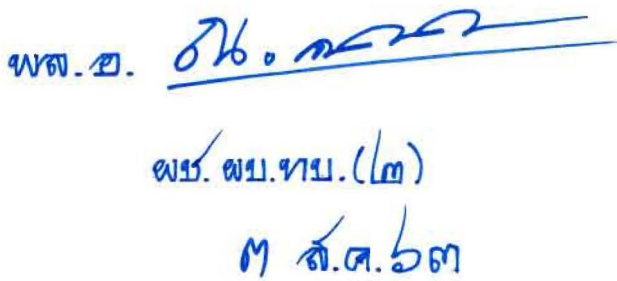 พล.อ.
ผช.ผบ.ทบ.(๒)
๓ ส.ค.๖๓